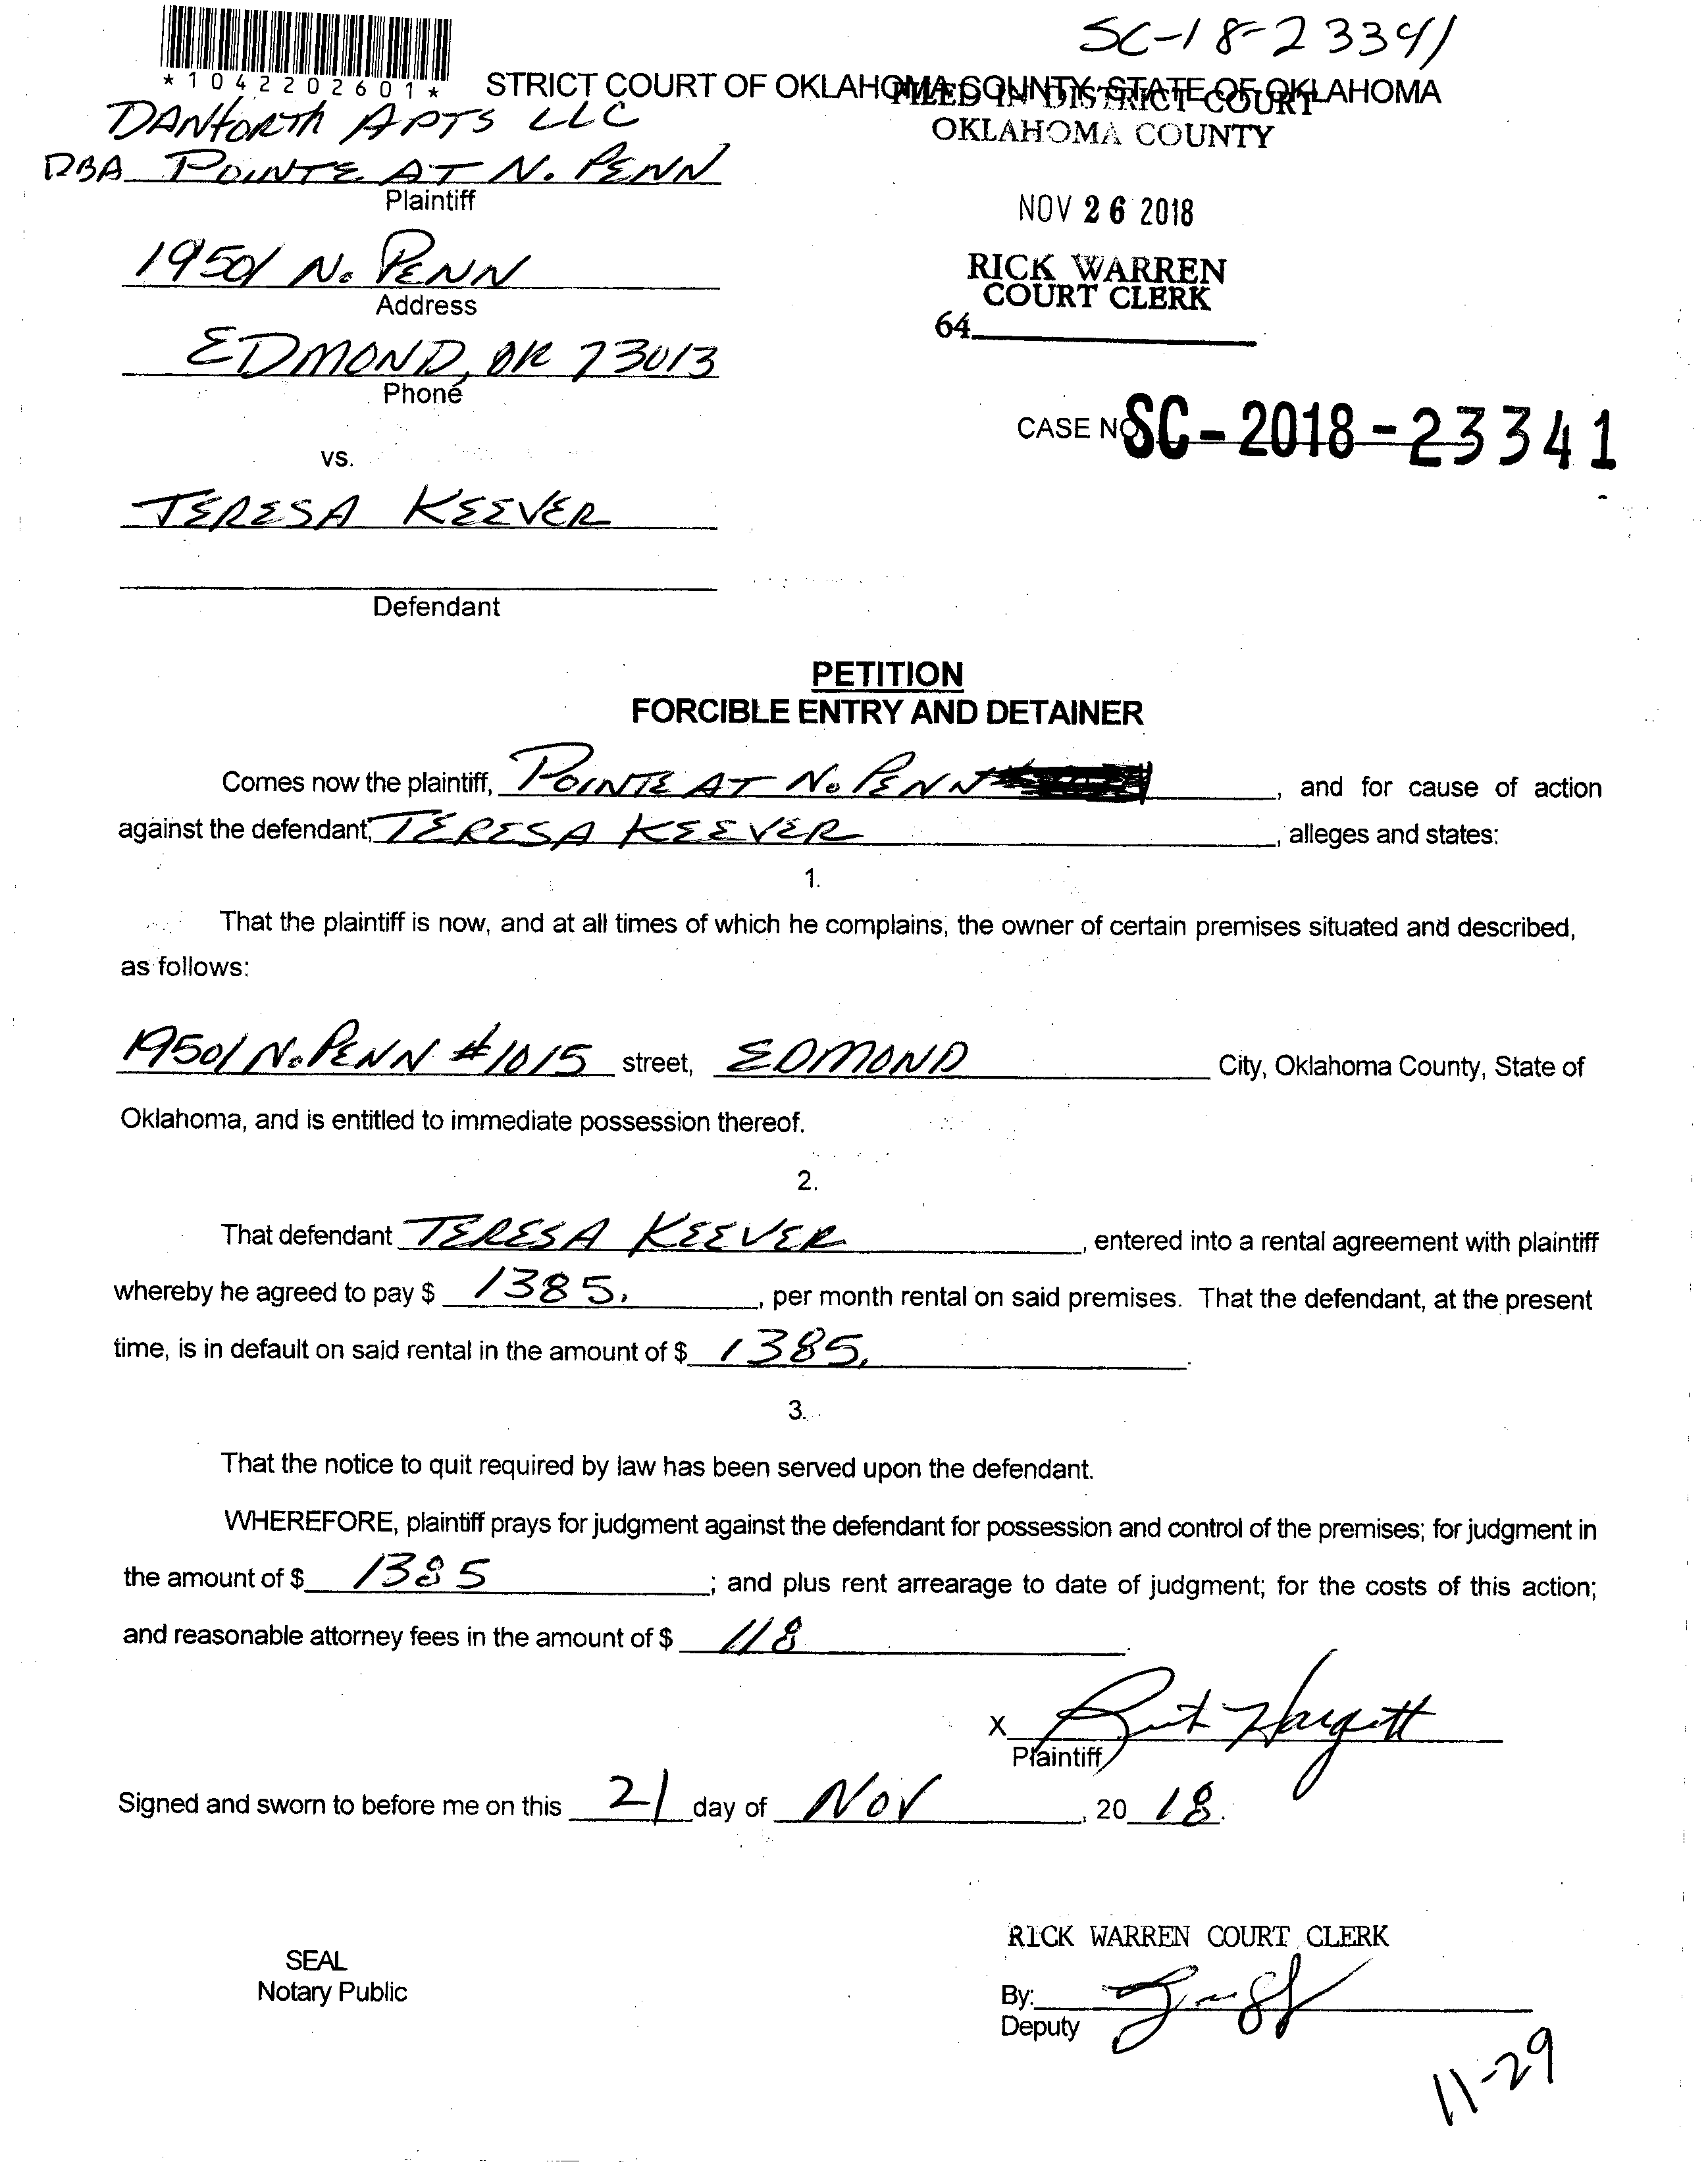 SC-18-23341
*1042202601*
STRICT COURT OF OKLAHOMA COUNTY, STATE OF OKLAHOMA
FILED IN DISTRICT COURT
OKLAHOMA COUNTY
DANFORTH APTS LLC
DBA POINTE AT N. PENN
Plaintiff
NOV 26 2018
19501 N. PENN
Address
RICK WARREN
COURT CLERK
64
EDMOND, OK 73013
Phone
CASE NO SC-2018-23341
vs.
TERESA KEEVER
Defendant
PETITION
FORCIBLE ENTRY AND DETAINER
Comes now the plaintiff, POINTE AT N. PENN, and for cause of action
against the defendant, TERESA KEEVER, alleges and states:
1.
That the plaintiff is now, and at all times of which he complains, the owner of certain premises situated and described,
as follows:
19501 N. PENN #1015 street, EDMOND City, Oklahoma County, State of
Oklahoma, and is entitled to immediate possession thereof.
2.
That defendant TERESA KEEVER, entered into a rental agreement with plaintiff
whereby he agreed to pay $ 1385., per month rental on said premises. That the defendant, at the present
time, is in default on said rental in the amount of $ 1385.
3.
That the notice to quit required by law has been served upon the defendant.
WHEREFORE, plaintiff prays for judgment against the defendant for possession and control of the premises; for judgment in
the amount of $ 1385; and plus rent arrearage to date of judgment; for the costs of this action;
and reasonable attorney fees in the amount of $ 118.
X Hargett
Plaintiff
Signed and sworn to before me on this 21 day of NOV, 2018.
RICK WARREN COURT CLERK
SEAL
Notary Public
By:
Deputy
11-29